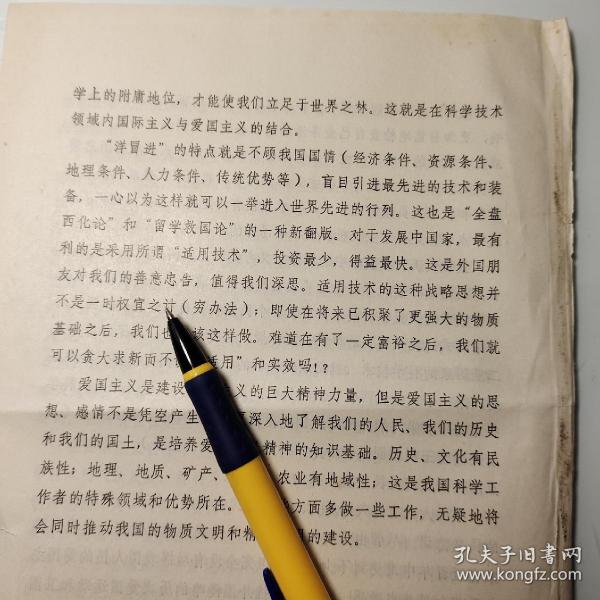 学上的附庸地位，才能使我们立足于世界之林。这就是在科学技术
领域内国际主义与爱国主义的结合。
“洋冒进”的特点就是不顾我国国情（经济条件、资源条件、
地理条件、人力条件、传统优势等），盲目引进最先进的技术和装
备，一心以为这样就可以一举进入世界先进的行列。这也是“全盘
西化论”和“留学救国论”的一种新翻版。对于发展中国家，最有
利的是采用所谓“适用技术”，投资最少，得益最快。这是外国朋
友对我们的善意忠告，值得我们深思。适用技术的这种战略思想并
不是一时权宜之计（穷办法）；即使在将来已积聚了更强大的物质
基础之后，我们也 该这样做。难道在有了一定富裕之后，我们就
可以贪大求新而不 适用”和实效吗！？
爱国主义是建设 主义的巨大精神力量，但是爱国主义的思
想、感情不是凭空产生 深入地了解我们的人民、我们的历史
和我们的国土，是培养爱 精神的知识基础。历史、文化有民
族性；地理、地质、矿产、 农业有地域性；这是我国科学工
作者的特殊领域和优势所在。 方面多做一些工作，无疑地将
会同时推动我国的物质文明和精 的建设。
孔夫子旧书网
www.kongfz.com